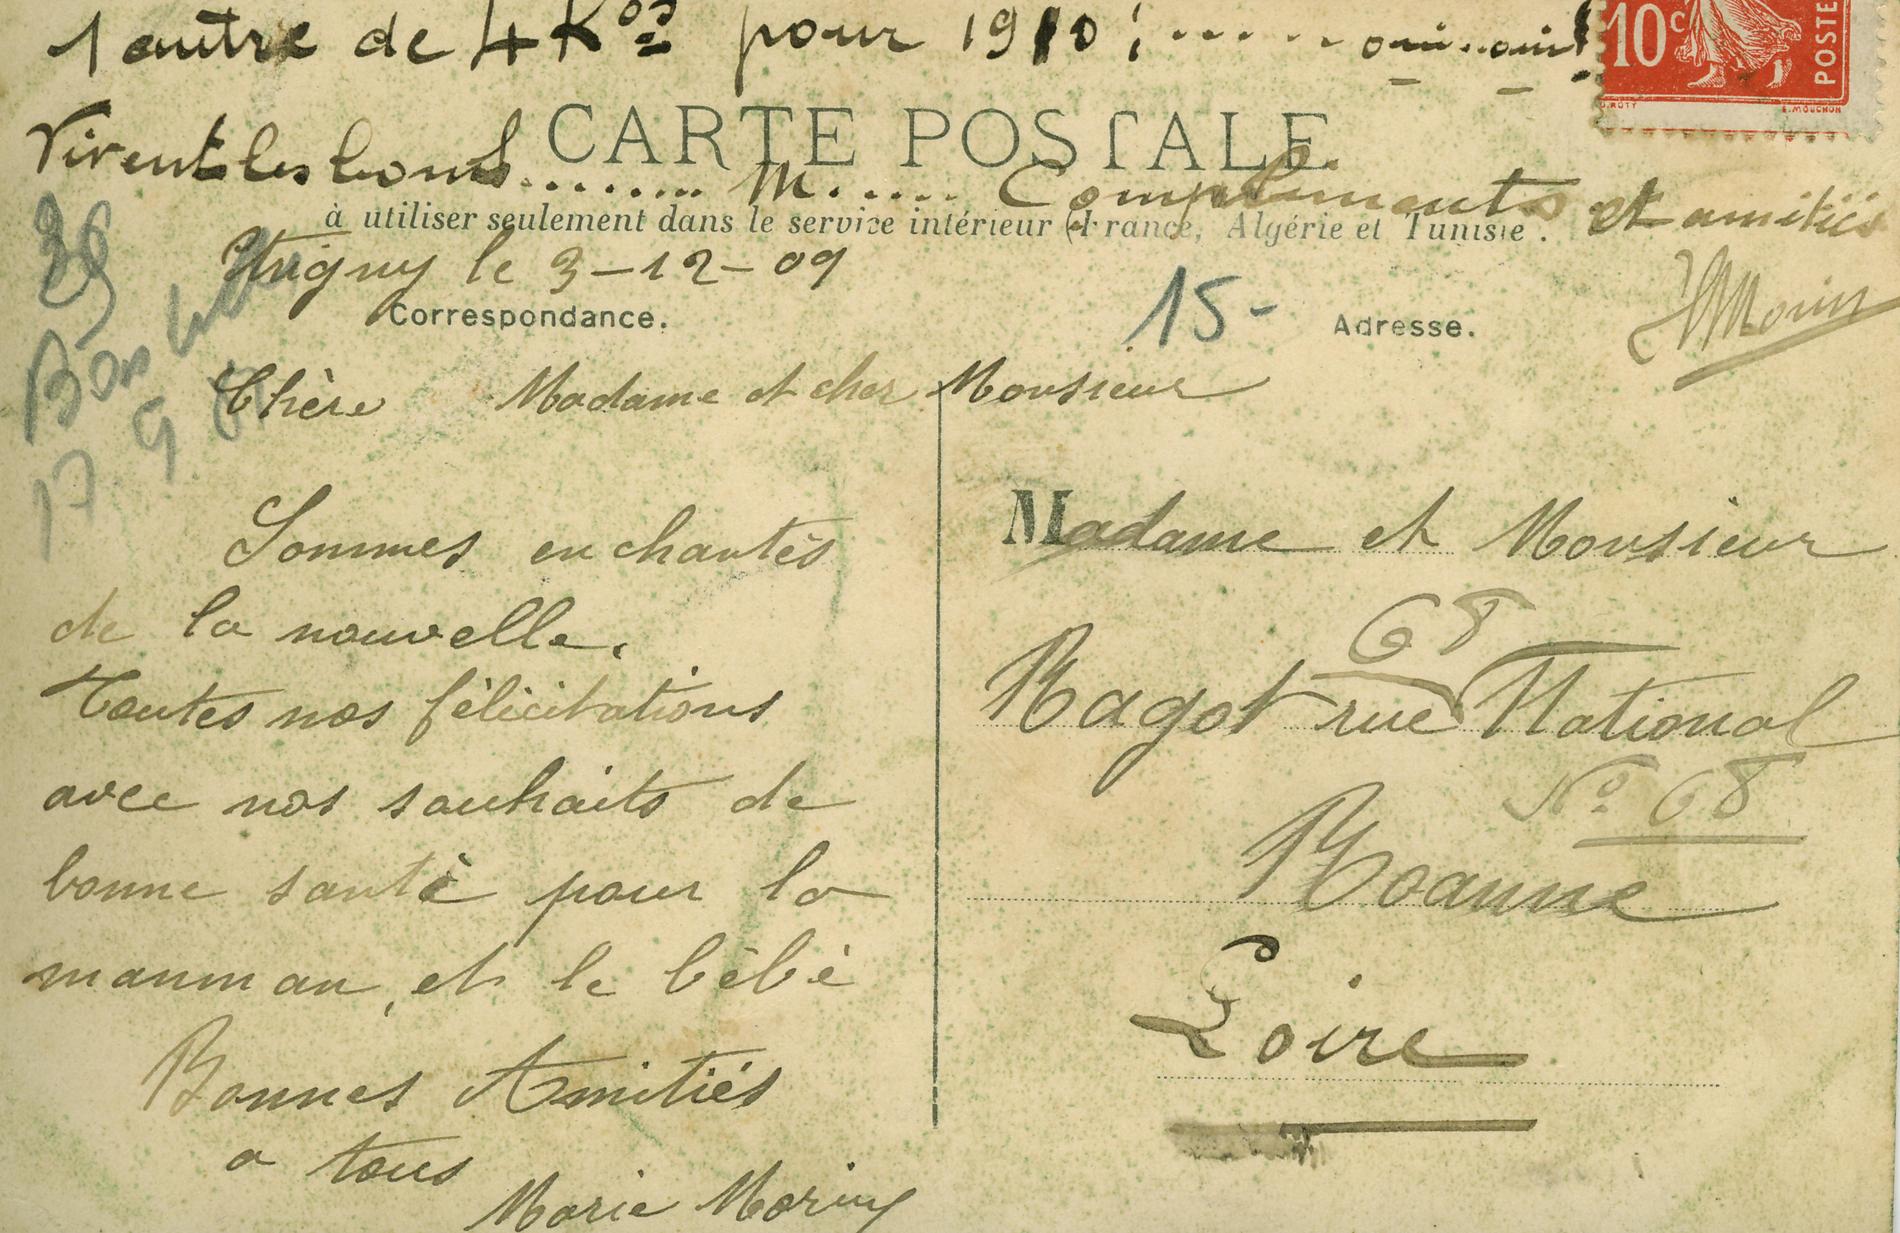 1 autre de 4 Kos pour 1910! ...... oui..oui!
10c POSTE
O.ROTY E.MOUCHON
CARTE POSTALE
Vivent les bons ........ M...... Compliments et amitiés
à utiliser seulement dans le service intérieur (France, Algérie et Tunisie.
le 3-12-09
HMorin
Correspondance.
15-
Adresse.
Chère Madame et cher Monsieur
Sommes enchantés
de la nouvelle.
Toutes nos félicitations
avec nos souhaits de
bonne santé pour la
manman, et le bébé
Bonnes Amitiés
a tous
Marie Morin
Madame et Monsieur
68
Ragot rue National
No. 68
Roanne
Loire